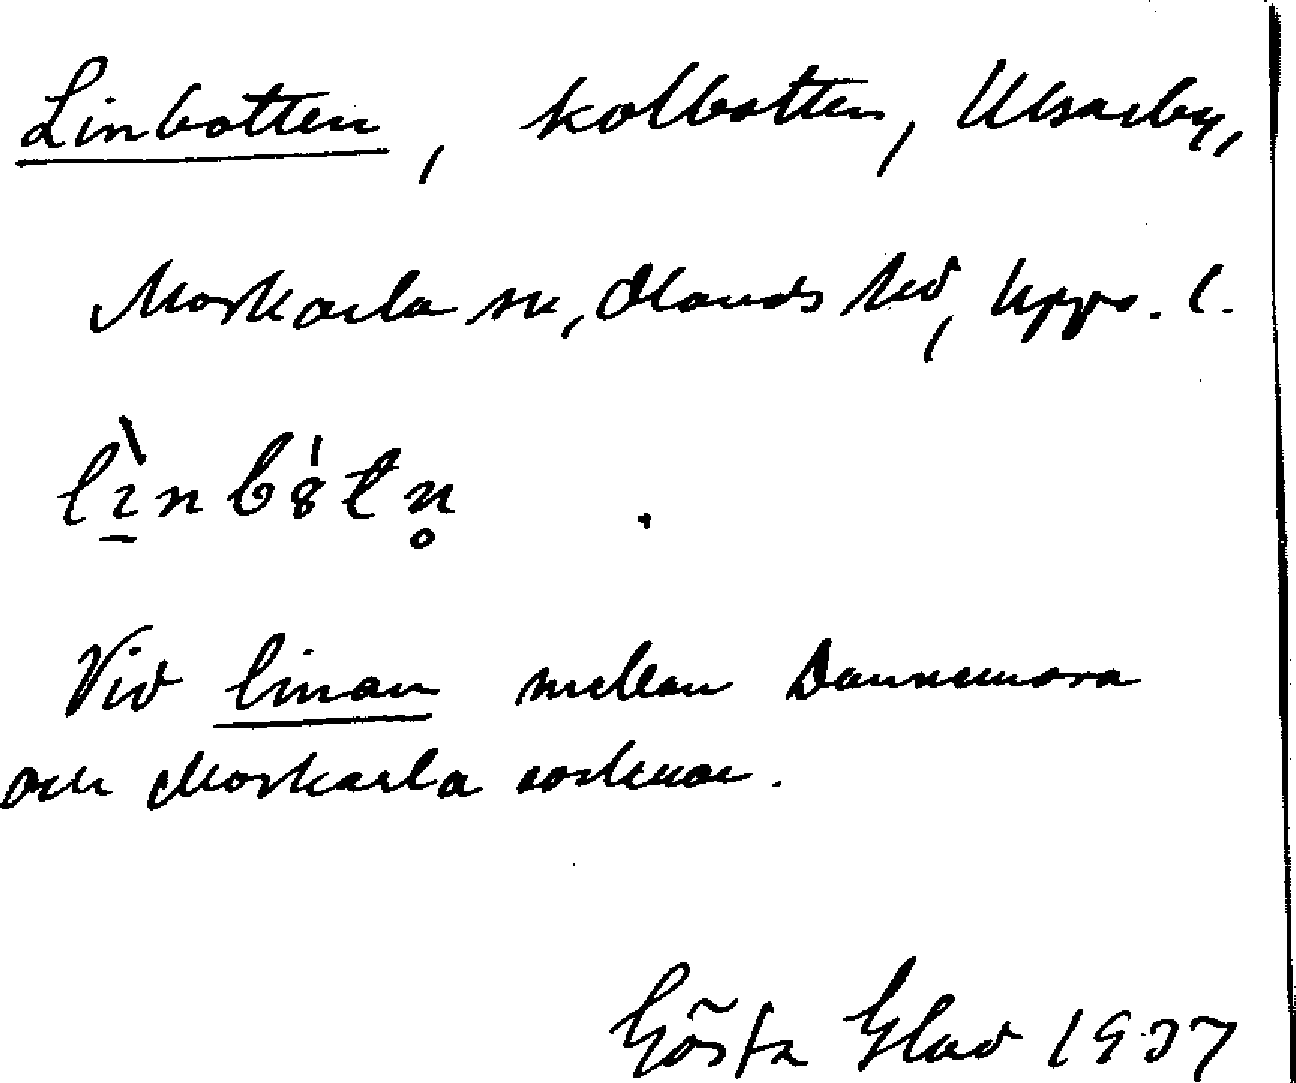 Linbotten, kolbotten, Ulvarby,
Morkarla sn, Olands hd, Upps. l.
lìnbòtn̥
Vid linan mellan Dannemora
och Morkarla socknar.
Gösta Glad 1937